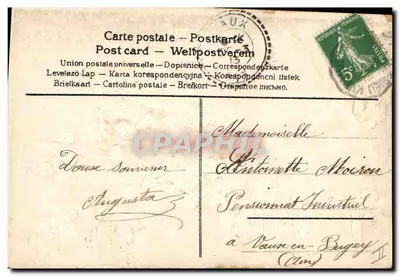 Carte postale - Postkarte
Post card - Weltpostverein
Union postale universelle - Dopisnice - Correspondenzkarte
Levelező-Lap - Karta korespondencyjna - Korespondenční lístek
Briefkaart - Cartolina postale - Brefkort - Открытое письмо.
AUX
5c
Mademoiselle
Antoinette Moiron
Pensionnat Industriel
à Vaux-en-Bugey
(Ain)
Douce souvenir
Augusta
CPA
PHOTO